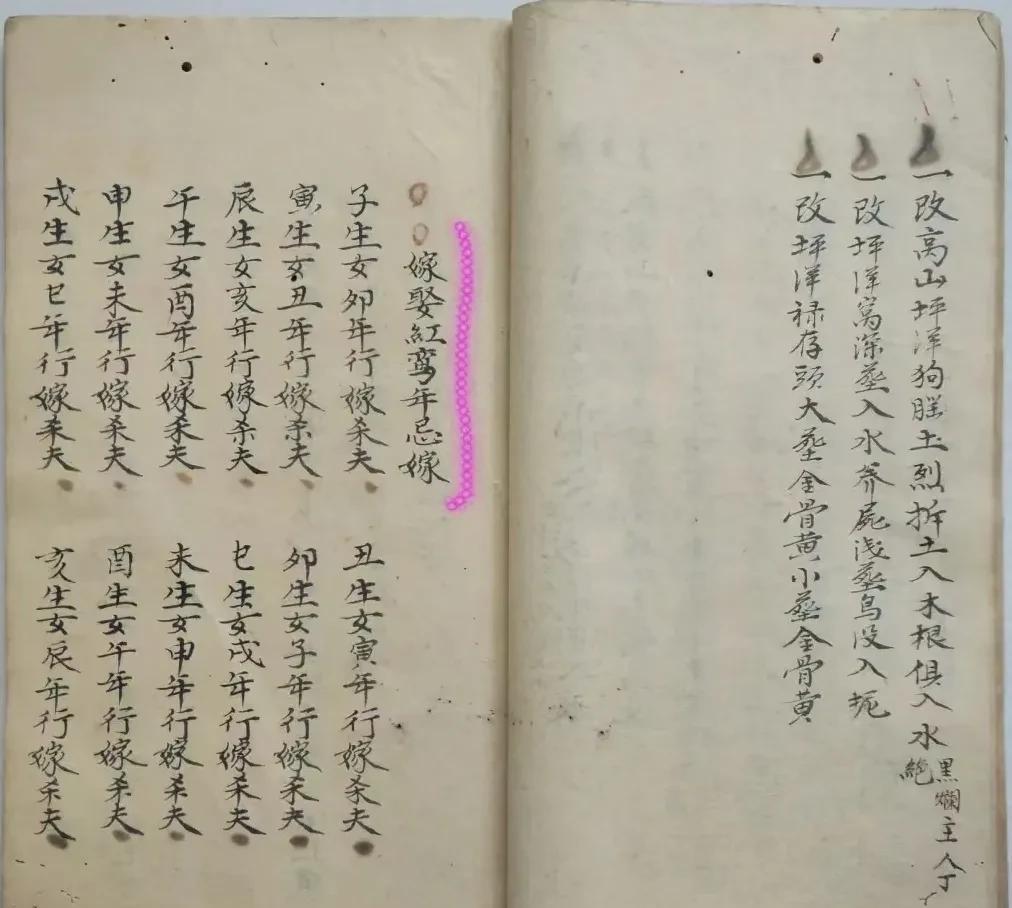 一改高山坪洋狗腄土烈拆土入木根俱入水黑爛主人丁絶
一改坪洋窩深葬入水养屍浅葬鳥没入扼
一改坪洋禄存頭大葬金骨黄小葬金骨黄
嫁娶紅鸾年忌嫁
子生女卯年行嫁杀夫
丑生女寅年行嫁杀夫
寅生女丑年行嫁杀夫
卯生女子年行嫁杀夫
辰生女亥年行嫁杀夫
巳生女戌年行嫁杀夫
午生女酉年行嫁杀夫
未生女申年行嫁杀夫
申生女未年行嫁杀夫
酉生女午年行嫁杀夫
戌生女巳年行嫁杀夫
亥生女辰年行嫁杀夫